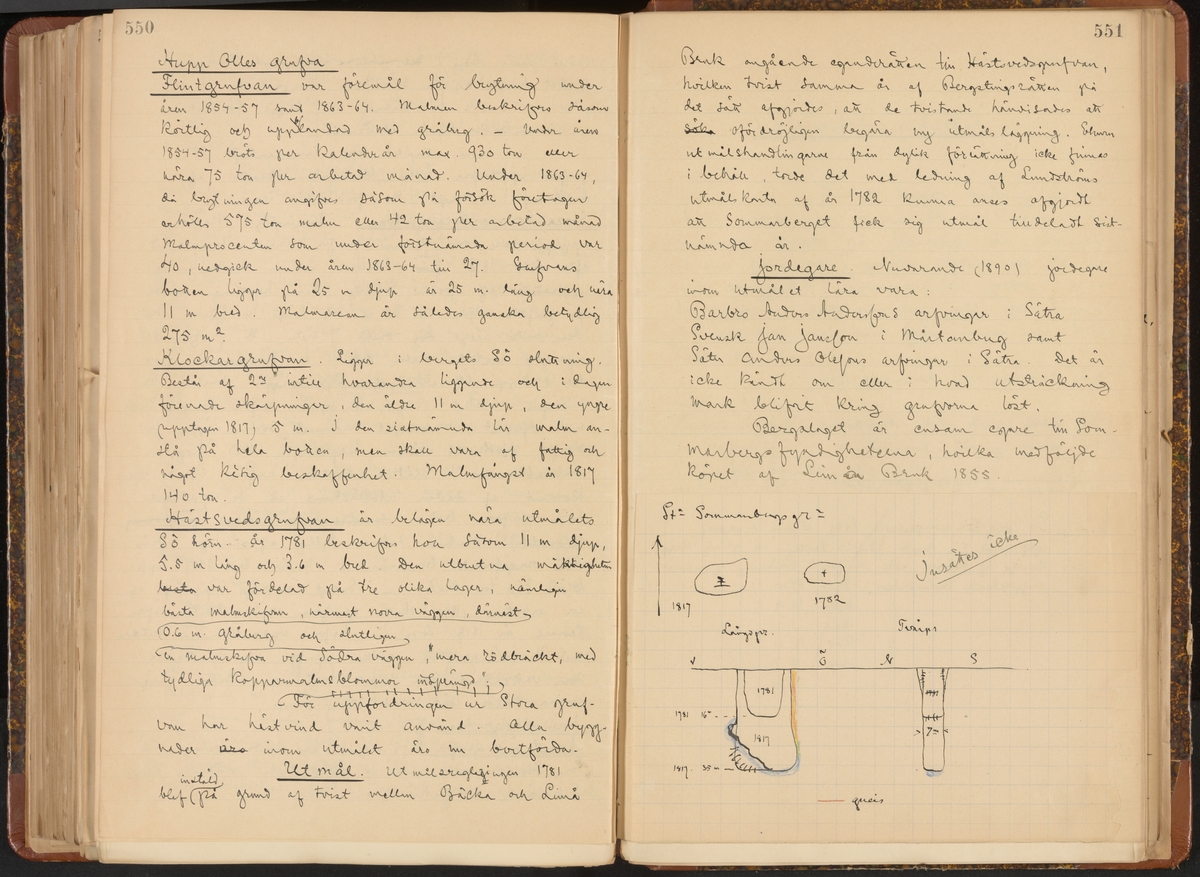 550
Hupp Olles grufva
Flintgrufvan var föremål för brytning under
åren 1854-57 samt 1863-64. Malmen beskrifves såsom
körtlig och uppblandad med gråberg. — Under åren
1854-57 bröts per kalenderår max. 930 ton eller
nära 75 ton per arbetad månad. Under 1863-64,
då brytningen angifves såsom på försök företagen
erhölls 575 ton malm eller 42 ton per arbetad månad
Malmprocenten som under förstnämnda period var
40, nedgick under åren 1863-64 till 27. Grufvans
botten ligger på 25 m djup är 25 m. lång och nära
11 m bred. Malmarean är således ganska betydlig
275 m².
Klockargrufvan. Ligger i bergets SÖ sluttning.
Består af 2ne intill hvarandra liggande och i dagen
förenade skärpningar, den äldre 11 m djup, den yngre
(upptagen 1817) 5 m. I den sistnämnda lär malm an-
stå på hela botten, men skall vara af fattig och
något kisig beskaffenhet. Malmfångst år 1817
140 ton.
Hästsvedsgrufvan är belägen nära utmålets
SÖ hörn. År 1781 beskrifves hon såsom 11 m djup,
5.5 m lång och 3.6 m bred. Den utbrutna mäktigheten
var fördelad på tre olika lager, nämligen
bästa malmskifvan, närmast norra väggen, därnäst
0.6 m. gråberg och slutligen
en malmskifva vid Södra väggen, "mera rödbräckt, med
tydliga kopparmalmsblommor inspränd";
För uppfordringen ur Stora gruf-
van har hästvind varit använd. Alla bygg-
nader äro inom utmålet äro nu bortförda.
Utmål. Utmålsregleringen 1781
inställd
blef på grund af tvist mellan Bäcka och Limå
551
Bruk angående eganderätten till Hästsvedsgrufvan,
hvilken tvist samma år af Bergstingsrätten på
det sätt afgjordes, att de tvistande hänvisades att
söka ofördröjligen begära ny utmålsläggning. Ehuru
utmålshandlingarne från dylik förrättning icke finnas
i behåll, torde det med ledning af Lundströms
utmålskarta af år 1782 kunna anses afgjordt
att Sommarberget fick sig utmål tilldeladt sist-
nämnda år.
Jordegare Nuvarande (1890) jordegare
inom utmålet lära vara:
Barbro Anders Anderssons arfvingar i Sätra
Svensk Jan Jansson i Mårtanberg samt
Säter Anders Olssons arfvingar i Sätra. Det är
icke kändt om eller i hvad utsträckning
mark blifvit kring grufvorna löst.
Bergslaget är ensam egare till Som-
marbergsfyndigheterna, hvilka medföljde
köpet af Limå Bruk 1855.
St. Sommarbergsgr.
Insättes icke
1817
1782
Längdpr.
Tvärpr.
V
Ö
N
S
1781
1781
1817
7
1817
— gneis